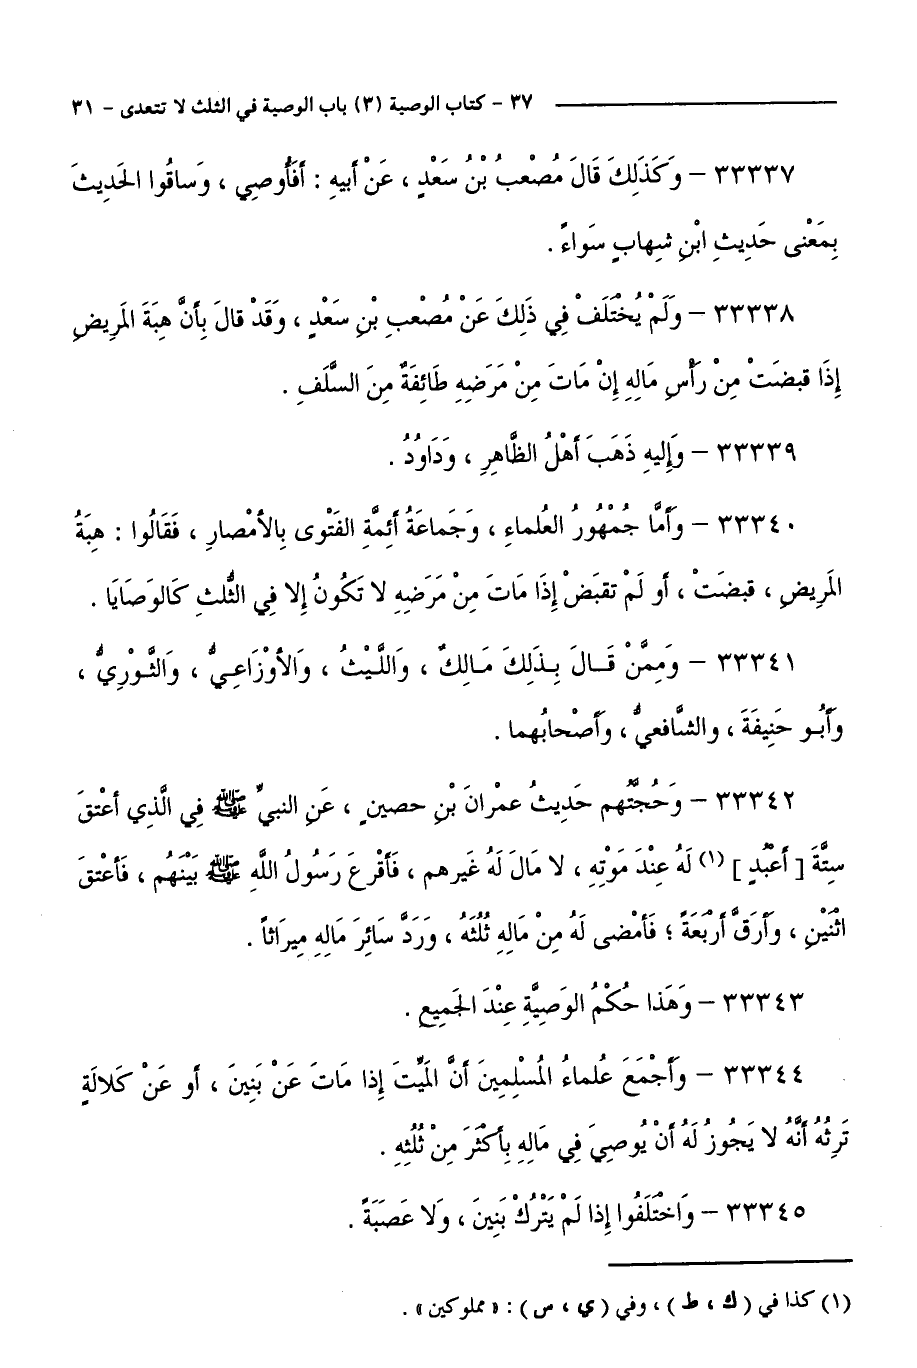 ٣٧ - كتاب الوصية (٣) باب الوصية في الثلث لا تتعدى - ٣١
٣٣٣٣٧ - وَكَذَلِكَ قَالَ مُصْعَبُ بْنُ سَعْدٍ ، عَنْ أَبِيهِ : أَفَأُوصِي ، وَساقُوا الحَدِيثَ
بِمَعْنى حَدِيثِ ابْنِ شِهابٍ سَواءً .
٣٣٣٣٨ - وَلَمْ يُخْتَلَفْ فِي ذَلِكَ عَنْ مُصْعَبِ بْنِ سَعْدٍ ، وَقَدْ قالَ بِأَنَّ هِبَةَ المَرِيضِ
إِذَا قبضَتْ مِنْ رَأْسِ مَالِهِ إِنْ مَاتَ مِنْ مَرَضِهِ طَائِفَةٌ مِنَ السَّلَفِ .
٣٣٣٣٩ - وَإِليهِ ذَهَبَ أَهْلُ الظَّاهِرِ ، وَدَاوُدُ .
٣٣٣٤٠ - وَأَمَّا جُمْهُورُ العُلماءِ ، وَجَماعَةُ أَئِمَّةِ الفَتْوى بِالأَمْصارِ ، فَقَالُوا : هِبَةُ
المَرِيضِ ، قبضَتْ ، أو لَمْ تقبَضْ إِذَا مَاتَ مِنْ مَرَضِهِ لا تَكُونُ إِلا فِي الثُّلثِ كَالوَصَايَا .
٣٣٣٤١ - وَمِمَّنْ قَـالَ بِـذَلِكَ مَـالِكٌ ، وَاللَّيْثُ ، وَالأَوْزَاعِـيُّ ، وَالثَّـوْرِيُّ ،
وَأَبُـو حَنِيفَةَ ، والشَّافعيُّ ، وَأَصْحابُهما .
٣٣٣٤٢ - وَحُجَّتُهم حَدِيثُ عمْرانَ بْنِ حصينٍ ، عَنِ النبيِّ ﷺ فِي الَّذِي أعْتقَ
ستَّةَ [ أَعْبُدٍ ] (١) لَهُ عِنْدَ مَوْتِهِ ، لا مَالَ لَهُ غَيرهم ، فَأَقْرعَ رَسُولُ اللَّهِ ﷺ بَيْنَهُم ، فَأعْتقَ
اثْنَيْنِ ، وَأَرَقَّ أَرْبَعَةً ؛ فَأمْضى لَهُ مِنْ مَالِهِ ثُلُثَهُ ، ورَدَّ سائِرَ مَالِهِ مِيرَاثاً .
٣٣٣٤٣ - وَهَذا حُكْمُ الوَصِيَّةِ عِنْدَ الجَمِيعِ .
٣٣٣٤٤ - وَأَجْمَعَ عُلماءُ المُسْلِمِينَ أَنَّ المَيِّتَ إِذا مَاتَ عَنْ بَنِينَ ، أو عَنْ كَلالَةٍ
تَرِثُهُ أَنَّهُ لا يَجُوزُ لَهُ أَنْ يُوصِيَ فِي مَالِهِ بِأَكْثَرَ مِنْ ثُلُثِهِ .
٣٣٣٤٥ - وَاخْتَلَفُوا إِذا لَمْ يَتْرُكْ بَنِينَ ، وَلا عَصَبَةً .
(١) كذا في ( ك ، ط ) ، وفي ( ي ، س ) : « مملوكين » .